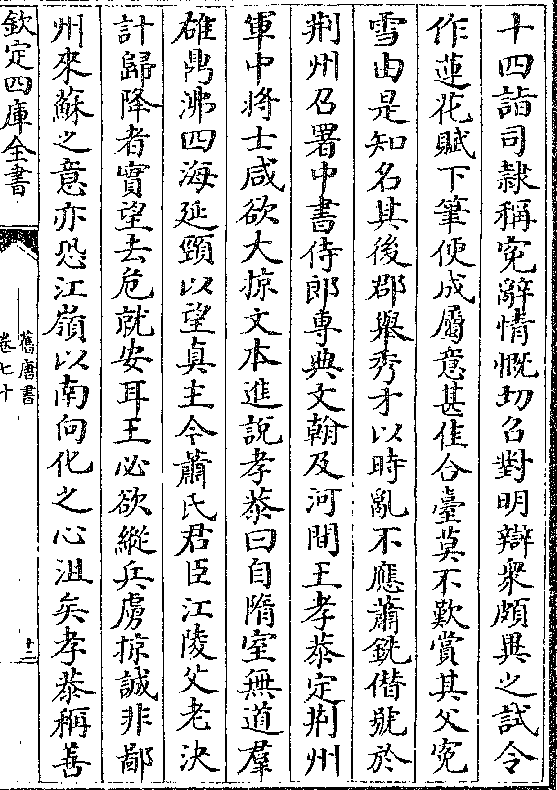 十四詣司隸稱寃辭情慨切召對明辯衆頗異之試令
作蓮花賦下筆便成屬意甚佳合臺莫不歎賞其父寃
雪由是知名其後郡舉秀才以時亂不應蕭銑僭號於
荆州召署中書侍郎專典文翰及河間王孝恭定荆州
軍中將士咸欲大掠文本進說孝恭曰自隋室無道羣
雄鼎沸四海延頸以望真主今蕭氏君臣江陵父老決
計歸降者實望去危就安耳王必欲縱兵虜掠誠非鄙
州來蘇之意亦恐江嶺以南向化之心沮矣孝恭稱善
欽定四庫全書
舊唐書
卷七十
十二